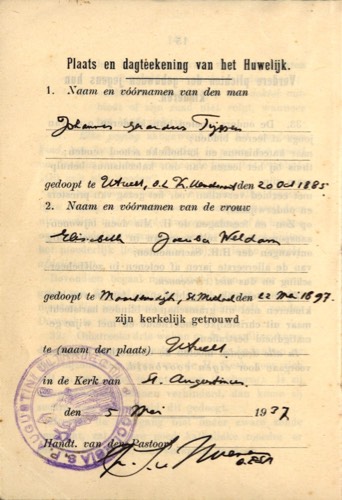 Plaats en dagteekening van het Huwelijk.
1. Naam en vóórnamen van den man
Johannes Gerardus Tijssen
gedoopt te Utrecht, O.L. den 20 Oct 1885
2. Naam en vóórnamen van de vrouw
Elisabeth Jacoba Weldam
gedoopt te Maartensdijk, St den 22 Mei 1897.
zijn kerkelijk getrouwd
te (naam der plaats) Utrecht
in de Kerk van St. Augustinus
den 5 Mei 1937
Handt. van den Pastoor,